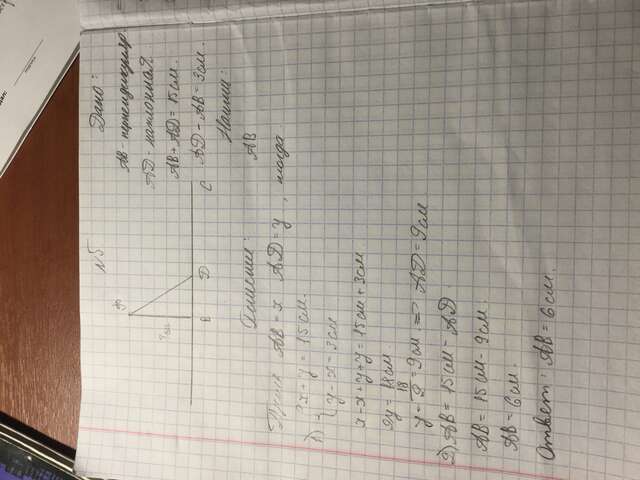 N5
Дано:
AB - перпендикуляр.
AD - наклонная.
AB + AD = 15 см.
AD - AB = 3 см.
Найти:
AB
A
? см
B D C
Решение:
Пусть AB = x AD = y, тогда
1) { x + y = 15 см.
y - x = 3 см
x - x + y + y = 15 см + 3 см.
2y = 18 см.
y = 18/2 = 9 см ⇒ AD = 9 см
2) AB = 15 см - AD.
AB = 15 см - 9 см.
AB = 6 см.
Ответ: AB = 6 см.